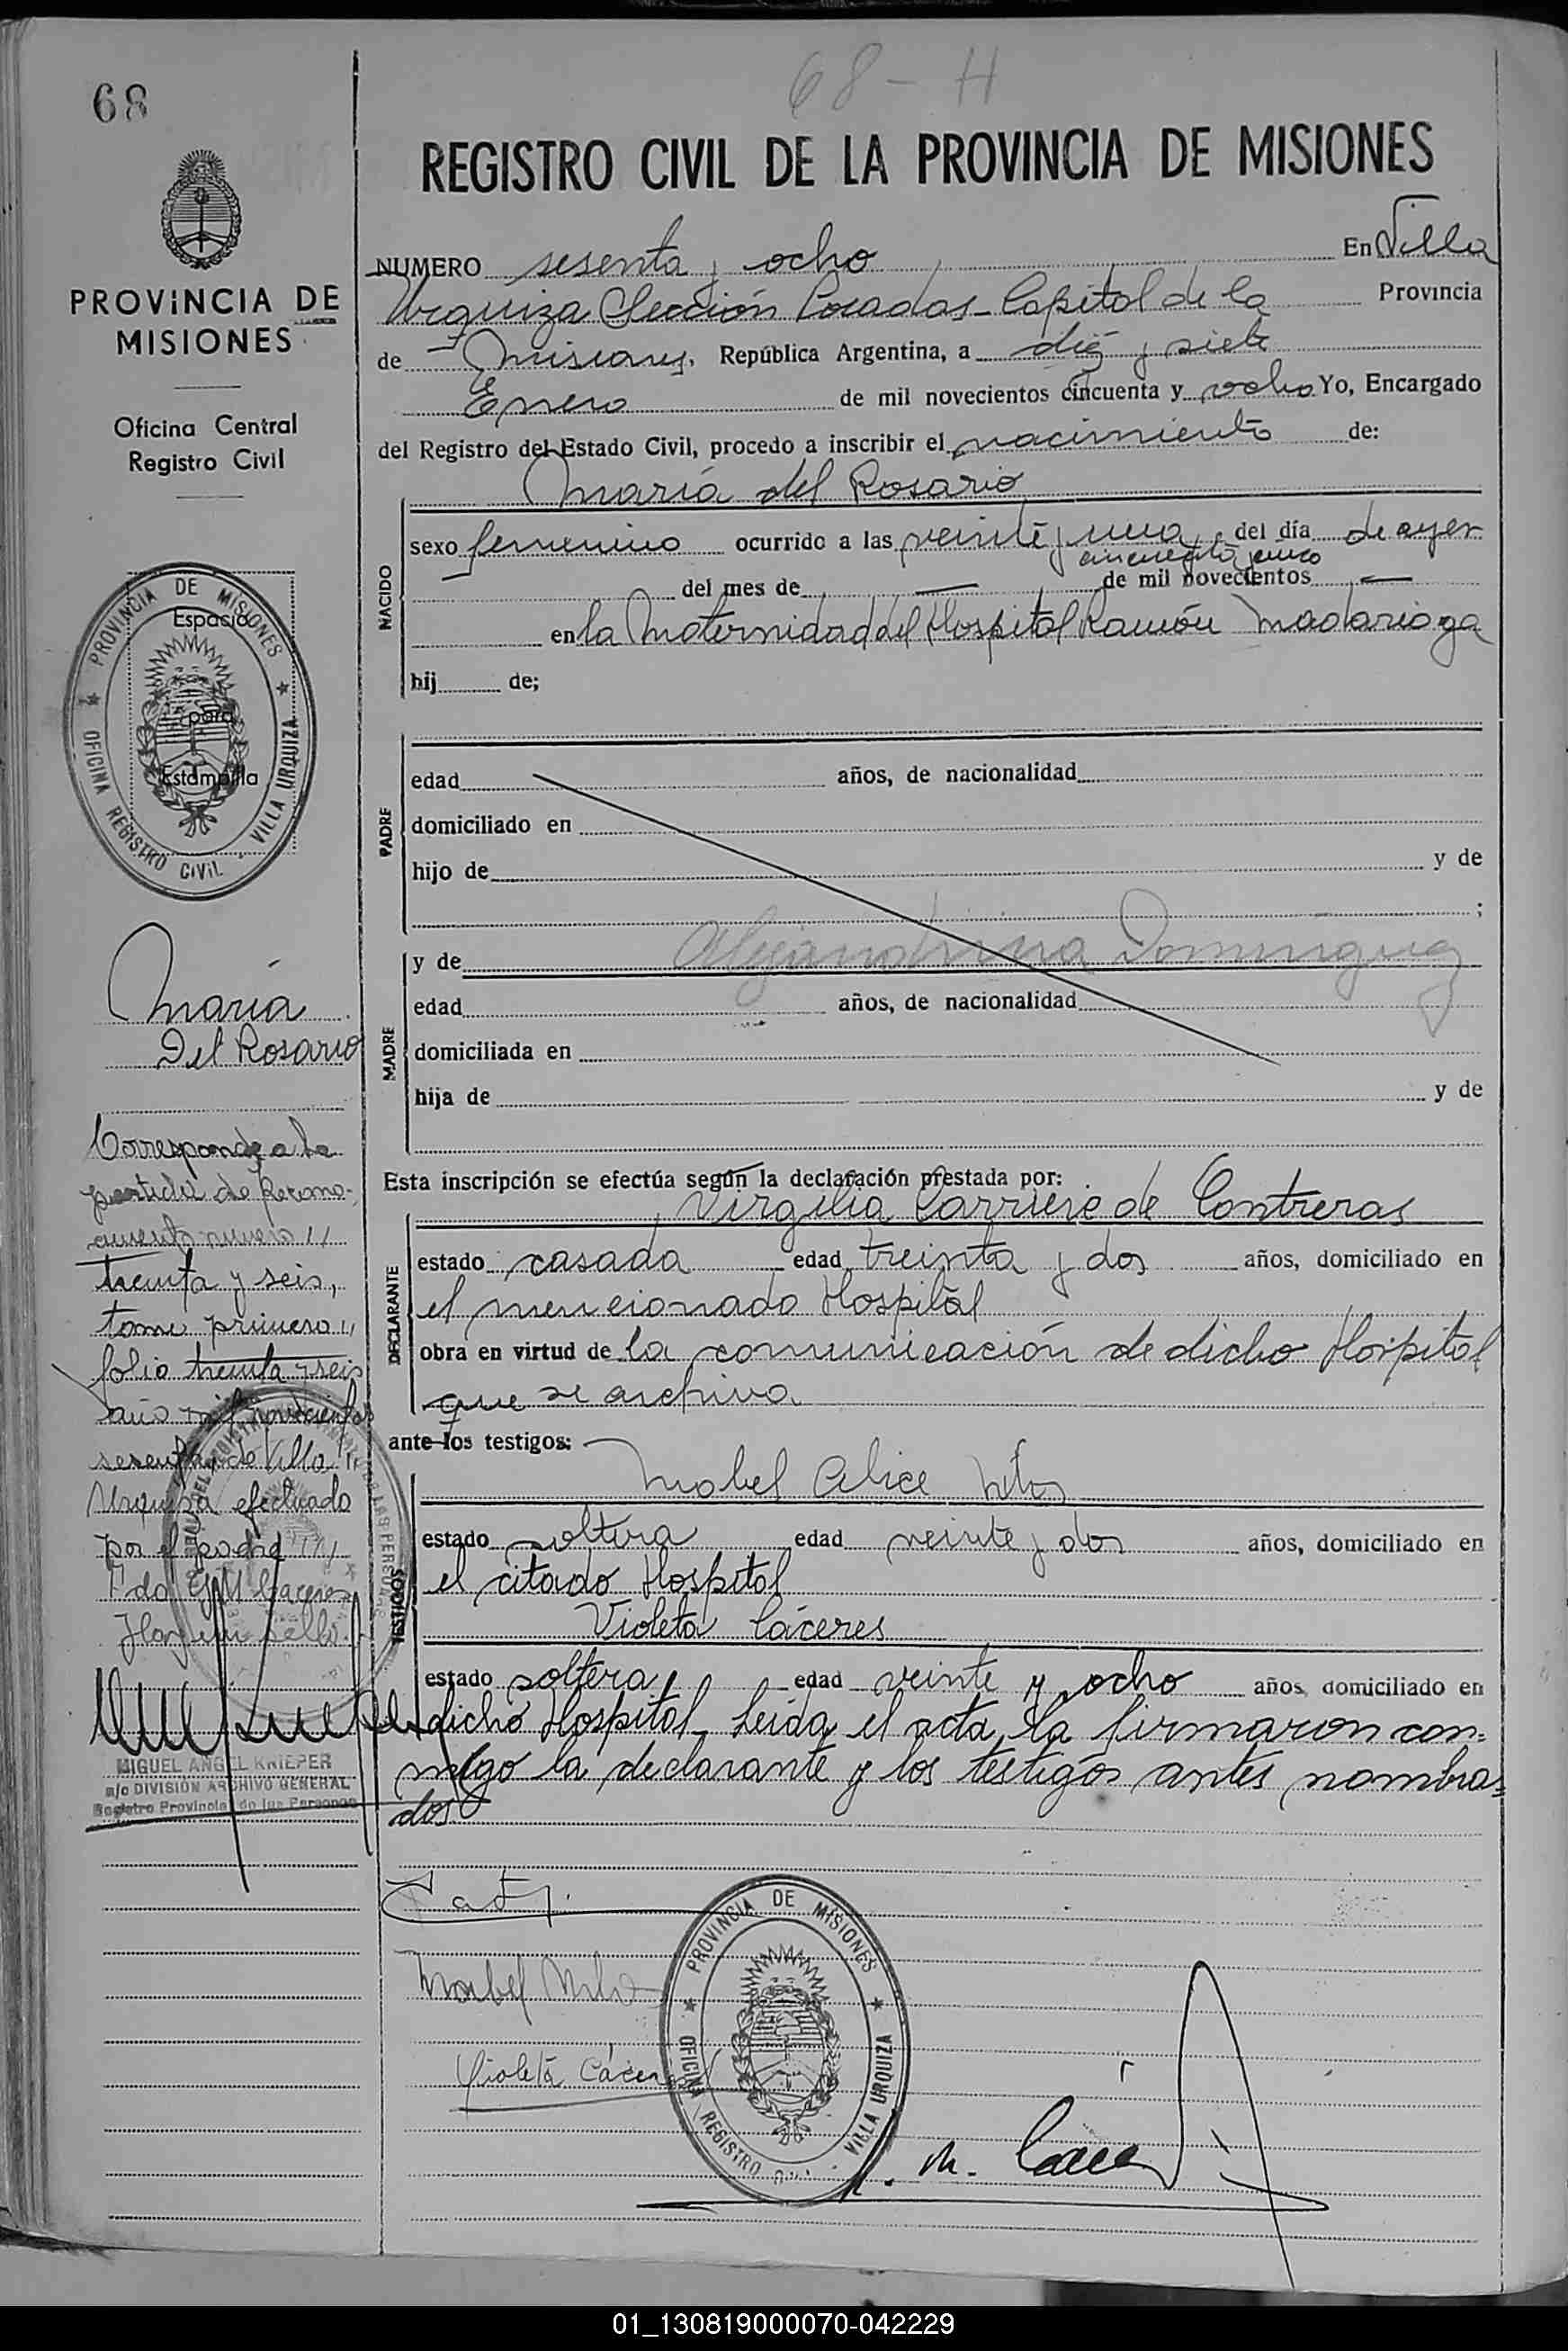 68
68 - H
REGISTRO CIVIL DE LA PROVINCIA DE MISIONES
PROVINCIA DE
MISIONES
Oficina Central
Registro Civil
PROVINCIA DE MISIONES
OFICINA REGISTRO CIVIL - VILLA URQUIZA
Espacio
para
Estampilla
María
Del Rosario
Corresponde a la
partida de Recono-
cimiento número
treinta y seis,
tomo primero
folio treinta y seis
año mil novecientos
sesenta, de Villa
Urquiza efectuado
por el padre
Fdo G M Caceres
Hay un sello.
MIGUEL ANGEL KNIEPER
a/c DIVISION ARCHIVO GENERAL
Registro Provincial de las Personas
NUMERO sesenta y ocho En Villa
Urquiza Sección Posadas - Capital de la Provincia
de Misiones, República Argentina, a diez y siete
Enero de mil novecientos cincuenta y ocho Yo, Encargado
del Registro del Estado Civil, procedo a inscribir el nacimiento de:
NACIDO
María del Rosario
sexo femenino ocurrido a las veinte y una, del día de ayer
cincuenta y cinco
del mes de — de mil novecientos —
en la Maternidad del Hospital Ramón Madariaga
hij de;
PADRE
edad años, de nacionalidad
domiciliado en
hijo de y de
;
MADRE
y de Alejandrina Dominguez
edad años, de nacionalidad
domiciliada en
hija de y de
Esta inscripción se efectúa según la declaración prestada por:
DECLARANTE
Virgilia Carriere de Contreras
estado casada edad treinta y dos años, domiciliado en
el mencionado Hospital
obra en virtud de la comunicación de dicho Hospital
que se archiva
ante los testigos:
TESTIGOS
Mabel Alice
estado soltera edad veinte y dos años, domiciliado en
el citado Hospital
Violeta Cáceres
estado soltera edad veinte y ocho años, domiciliado en
dicho Hospital - Leída el acta, la firmaron con-
migo la declarante y los testigos antes nombra-
dos.
Mabel
Violeta Cáceres
PROVINCIA DE MISIONES
OFICINA REGISTRO CIVIL - VILLA URQUIZA
01_130819000070-042229